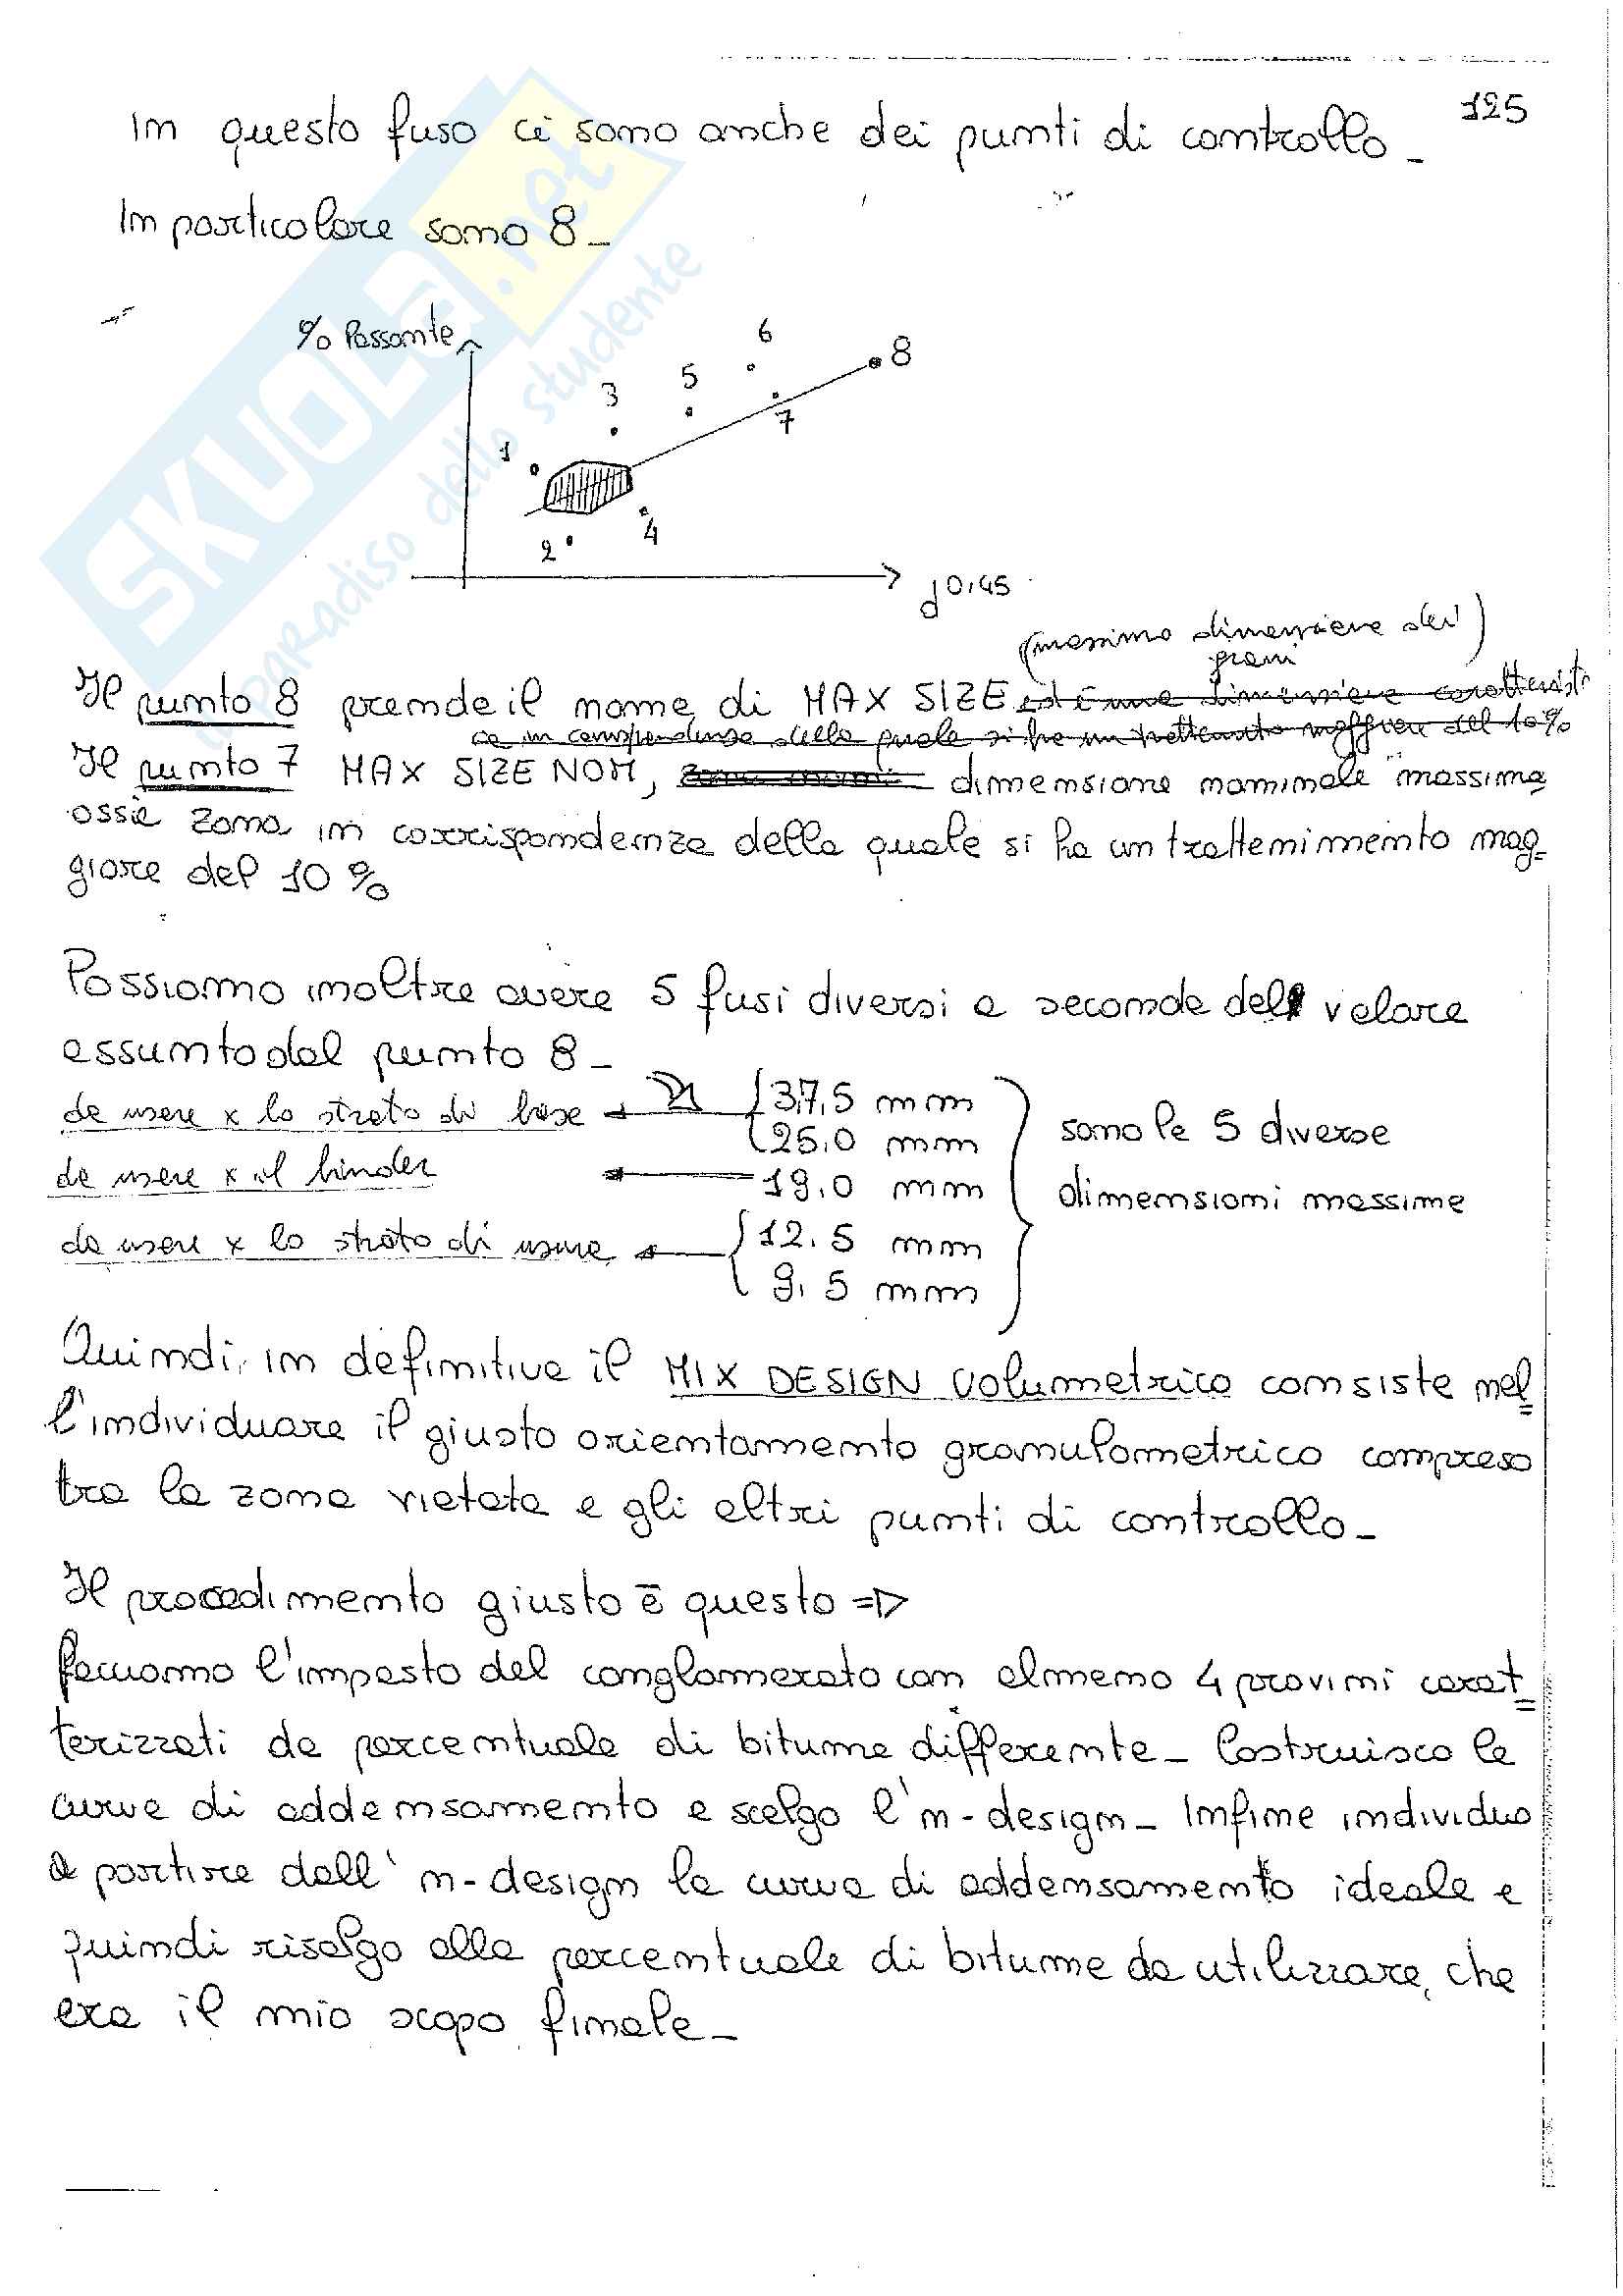 125
In questo fuso ci sono anche dei punti di controllo_
In particolare sono 8_
% Passante
1
2
3
4
5
6
7
8
d^0,45
(massima dimensione dei grani)
Il punto 8 prende il nome di MAX SIZE ed è una dimensione caratteristi
ca in corrispondenza della quale si ha un trattenuto maggiore del 10%
Il punto 7 MAX SIZE NOM, dimensione nominale massima
ossia zona in corrispondenza della quale si ha un trattenimento mag-
giore del 10 %
Possiamo inoltre avere 5 fusi diversi a seconda del valore
assunto dal punto 8_
da usare x lo strato di base
37,5 mm
25,0 mm
da usare x il binder
19,0 mm
da usare x lo strato di usura
12,5 mm
9,5 mm
sono le 5 diverse
dimensioni massime
Quindi, in definitiva il MIX DESIGN volumetrico consiste nel
l'individuare il giusto orientamento granulometrico compreso
tra la zona vietata e gli altri punti di controllo_
Il procedimento giusto è questo =>
facciamo l'impasto del conglomerato con almeno 4 provini carat
terizzati da percentuale di bitume differente_ Costruisco le
curve di addensamento e scelgo l'n-design_ Infine individuo
a partire dall'n-design la curva di addensamento ideale e
quindi risalgo alla percentuale di bitume da utilizzare, che
era il mio scopo finale_
SKUOLA.net
il paradiso dello studente